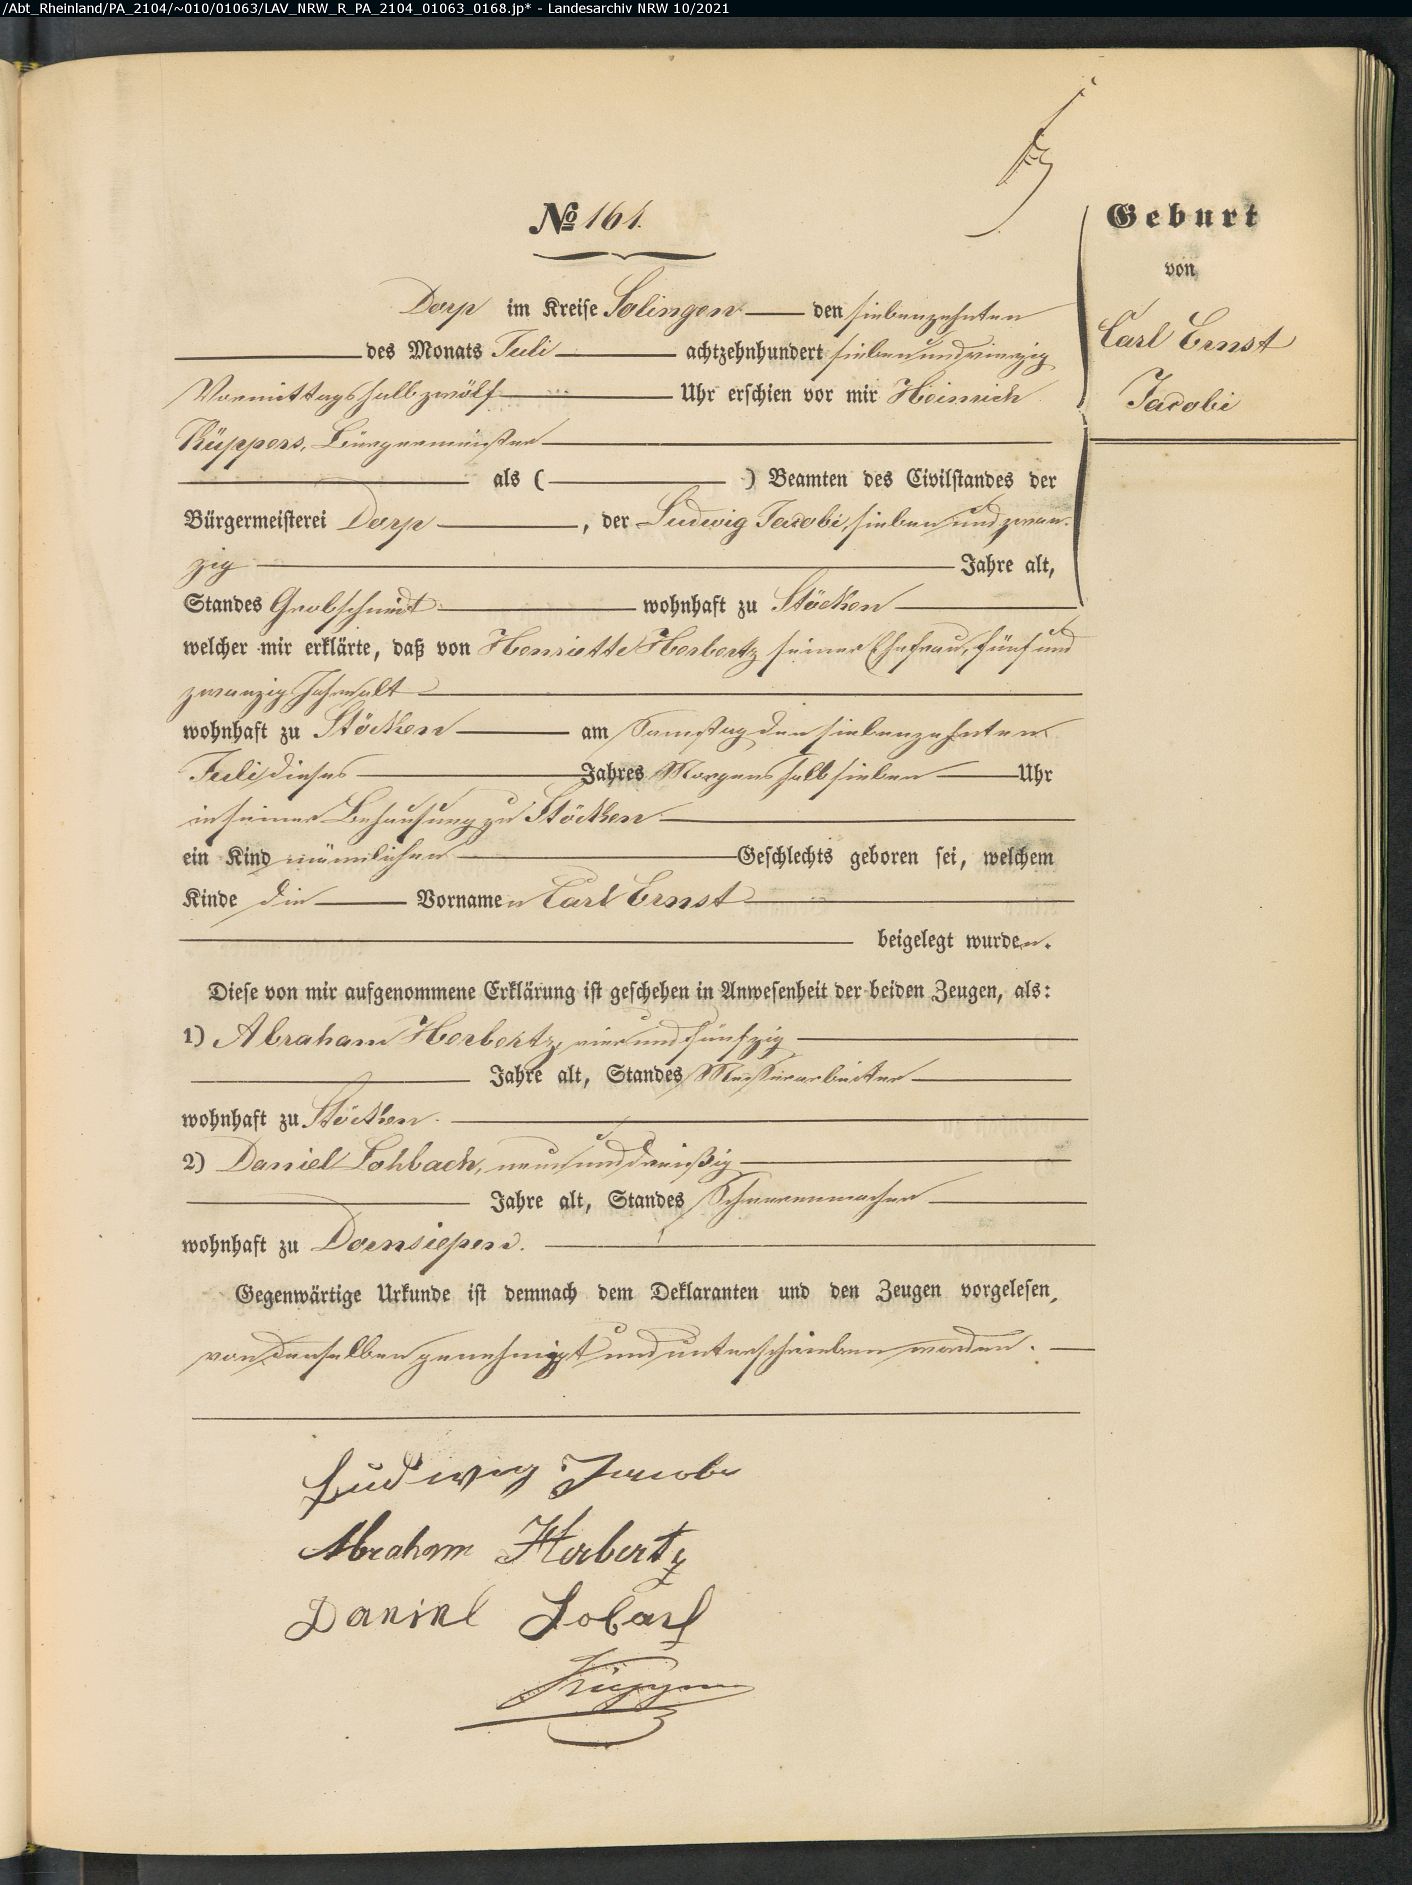 /Abt_Rheinland/PA_2104/~010/01063/LAV_NRW_R_PA_2104_01063_0168.jp* - Landesarchiv NRW 10/2021
№ 161.
Geburt
von
Carl Ernst
Jacobi
Dorp im Kreise Solingen den siebenzehnten
des Monats Juli achtzehnhundert sieben und vierzig
Vormittags halb zwölf Uhr erschien vor mir Heinrich
Küppers, Bürgermeister
als ( ) Beamten des Civilstandes der
Bürgermeisterei Dorp, der Ludwig Jacobi, sieben und zwan-
zig Jahre alt,
Standes Grobschmidt wohnhaft zu Stöcken
welcher mir erklärte, daß von Henriette Herbertz seiner Ehefrau, fünf und
zwanzig Jahre alt
wohnhaft zu Stöcken am Samstag den siebenzehnten
Juli dieses Jahres Morgens halb sieben Uhr
in seiner Behausung zu Stöcken
ein Kind männlichen Geschlechts geboren sei, welchem
Kinde die Vornamen Carl Ernst
beigelegt wurden.
Diese von mir aufgenommene Erklärung ist geschehen in Anwesenheit der beiden Zeugen, als:
1) Abraham Herbertz, vier und fünfzig
Jahre alt, Standes Messerarbeiter
wohnhaft zu Stöcken.
2) Daniel Lohbach, neun und dreißig
Jahre alt, Standes Scheerenmacher
wohnhaft zu Dornsiepen.
Gegenwärtige Urkunde ist demnach dem Deklaranten und den Zeugen vorgelesen,
von denselben genehmigt und unterschrieben worden.
Ludwig Jacobi
Abraham Herbertz
Daniel Lobach
Küppers